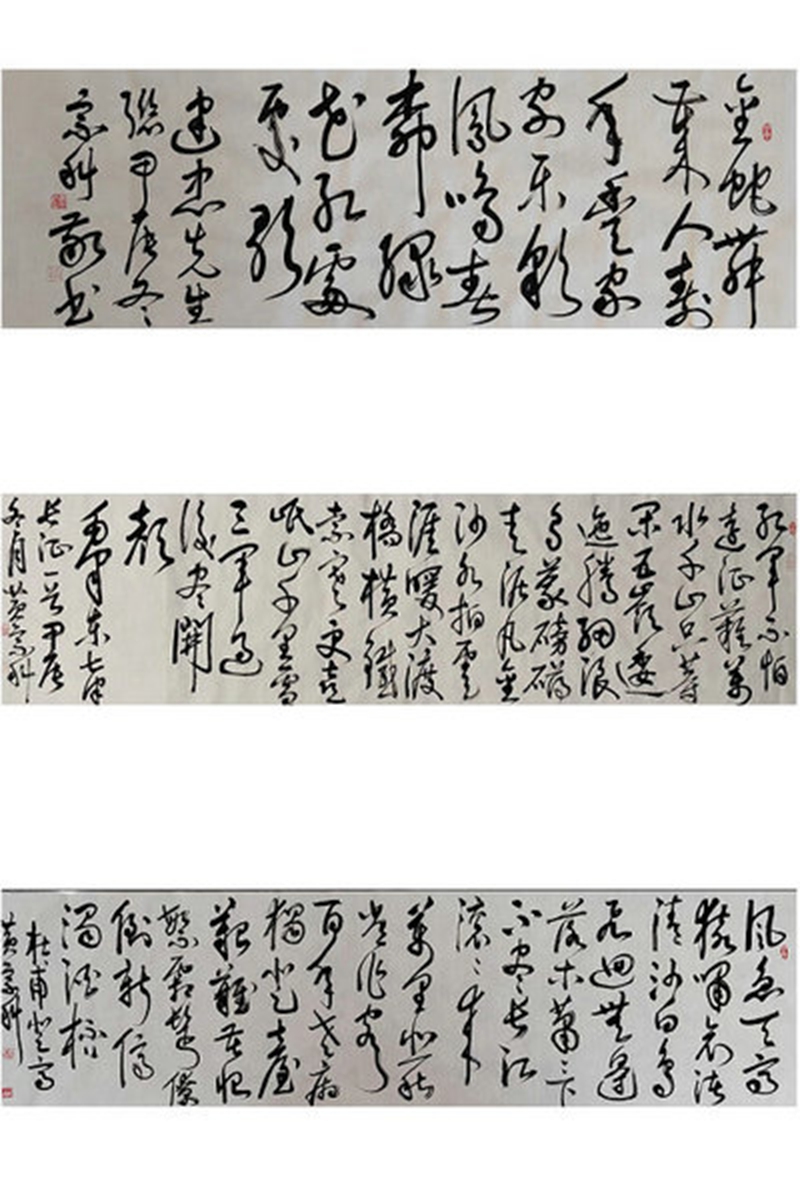 金蛇舞
來人壽
年豐家
家樂彩
鳳鳴春
綠
花紅處
建忠先生
聯甲辰冬
宗科敬书
紅軍不怕
遠征難萬
水千山只等
閑五嶺逶
迤騰細浪
烏蒙磅礴
走泥丸金
沙水拍雲
涯暖大渡
橋橫鐵
索寒更喜
岷山千里雪
三軍過
後盡開
顏
毛澤東七律
長征一首甲辰
冬月黄宗科
風急天高
猿嘯哀渚
清沙白鳥
飛迴無邊
落木蕭〻下
不盡長江
滾〻來
萬里悲秋
常作客
百年多病
獨登臺
艱難苦恨
繁霜鬢潦
倒新停
濁酒杯
杜甫登高
黄宗科